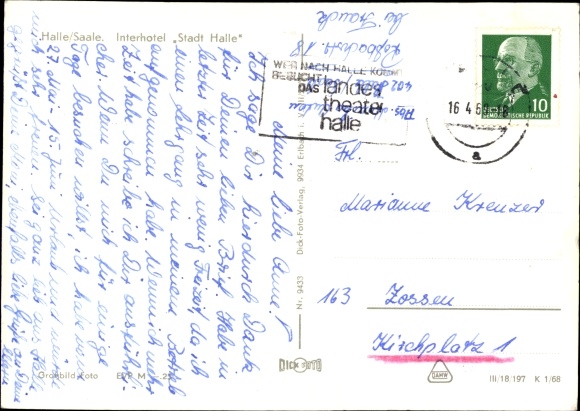 Halle/Saale. Interhotel „Stadt Halle"
Meine liebe Anne!
Ich sage Dir hierdurch Dank
für Deinen lieben Brief. Habe in
letzter Zeit sehr wenig Freizeit, da ich
einen Lehrgang in meinem Betrieb
aufgenommen habe. Wenn ich mehr
Zeit habe schreibe ich Dir ausführli-
cher. Wenn Du mich für einige
Tage besuchen willst, ich habe vom
27. Mai - 15. Juni Urlaub und würde
mich sehr freuen. Sei ganz lieb aus Halle
WER NACH HALLE KOMMT
BESUCHT
DAS landes
theater
halle
16.4.69
a
10
DEUTSCHE DEMOKRATISCHE REPUBLIK
402 Halle
bei Franke
Frl.
Marianne Kreuzer
163 Zossen
Kirchplatz 1
Dick-Foto-Verlag, 9934 Erlbach
Nr. 9433
DICK FOTO
Grünbild-Foto
III/18/197 K 1/68